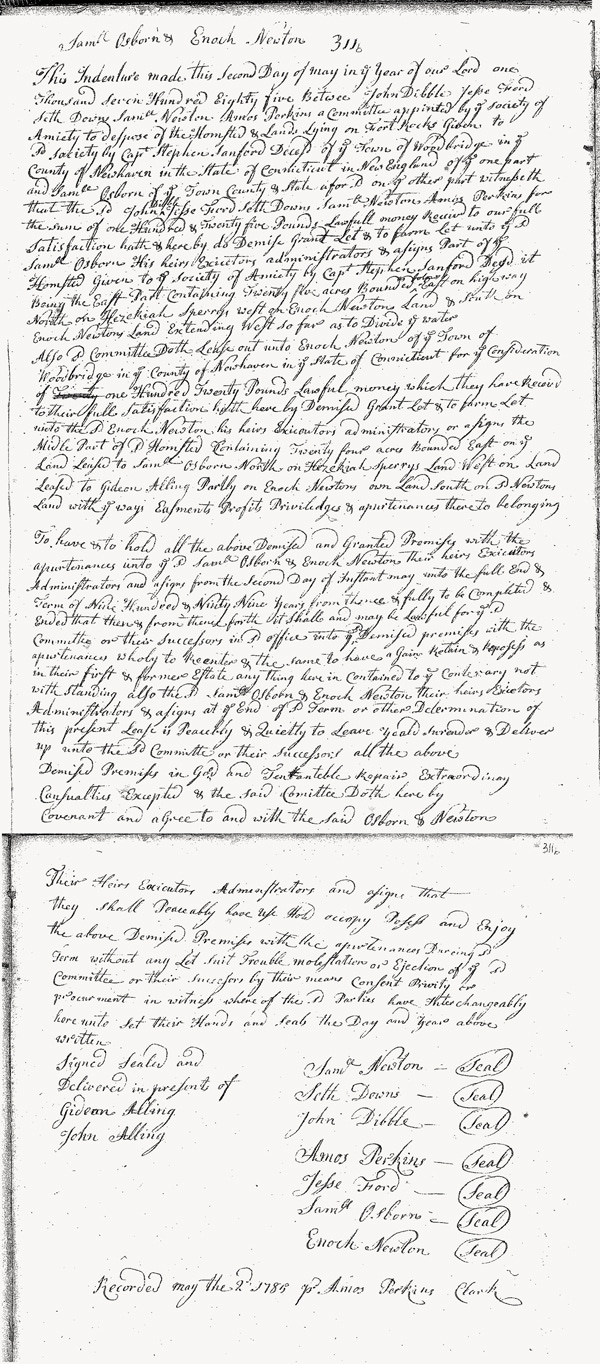 Samll Osborn & Enoch Newton 311b
This Indenture made this Second Day of may in ye Year of our Lord one
Thousand Seven Hundred Eighty five Betwee John Dibble Jesse Ford
Seth Downs Samll Newton Amos Perkins a Committee appinted by ye Society of
Amiety to despose of the Homsted & Lands Lying on Fort Rocks Given to
sd Society by Capt Stephen Sanford Decesd of ye Town of Woodbridge in ye
County of Newhaven in the State of Conecticut in New England of ye one part
and Samll Osborn of ye Town County & State afor sd on ye other part witnesseth
that the sd John Dibble Jesse Ford Seth Downs Samll Newton Amos Perkins for
the Sum of one Hundred & Twenty five Pounds Lawfull money Reciv'd to our full
Satisfaction hath & here by do Demise Grant Let & to farm Let unto ye sd
Samll Osborn His heirs Exicutors administrators & asigns Part of ye
Homsted Given to ye Society of Amiety by Capt Stephen Sanford Decsd it
Being the East Part Containing Twenty five acres Bounded East on high way
North on Hezekiah Sperrys west on Enoch Newton Land & South on
Enoch Newtons Land Extending West so far as to Divide ye water
Also sd Committee Doth Lease out unto Enoch Newton of ye Town of
Woodbridge in ye County of Newhaven in ye State of Connecticut for ye Consideration
of Twenty one Hundred Twenty Pounds Lawful money which they have Receivd
to their full Satisfaction hath here by Demised Grant Let & to farm Let
unto the sd Enoch Newton his heirs Exicutors administrators or asigns the
Midle Part of sd Homsted Containing Twenty four acres Bounded East on ye
Land Leased to Samll Osborn North on Hezekiah Sperrys Land West on Land
Leased to Gideon Alling Partly on Enoch Newtons own Land South on sd Newtons
Land with ye ways Easments Profits Priviledges & apurtenances there to belonging
To have & to hold all the above Demised and Granted Premises with the
apurtenances unto ye sd Samll Osborn & Enoch Newton their heirs Exicutors
Administrators and asigns from the Second Day of Instant may unto the full End &
Term of Nine Hundred & Ninty Nine Years from thence & fully to be Completed &
Ended that then & from thence forth it Shall and may be Lawful for ye sd
Committe or their Successors in sd office into ye Demised premises with the
apurtenances wholy to Reenter & the same to have a Gain Retain & Reposess as
in their first & former Estate any thing here in Contained to ye Contexary not
with Standing also the sd Samll Osborn & Enoch Newton their heirs Exictors
Administrators & asigns at ye End of sd Term or other Determination of
this present Lease is Peacebly & Quietly to Leave Yeald Surender & Deliver
up unto the sd Committe or their Successors all the above
Demised Premises in Good and Tentanteble Repair Extraordinary
Causualties Excepted & the said Comittee Doth here by
Covenant and aGree to and with the said Osborn & Newton
311b
Their Heirs Exicutors Admenistrators and asigns that
they Shall Peaceably have use Hold occopy Posess and Enjoy
the above Demised Premises with the apurtenances Dureing sd
Term without any Let Suit Trouble molestation or Ejection of ye sd
Committee or their Successors by their means Consent Privity or
procurment in witness where of the sd Parties have Interchangeably
here unto Set their Hands and Seals the Day and Year above
written
Signed Sealed and
Delivered in present of
Gideon Alling
John Alling
Samll Newton – Seal
Seth Downs – Seal
John Dibble – Seal
Amos Perkins – Seal
Jesse Ford – Seal
Samll Osborn – Seal
Enoch Newton Seal
Recorded may the 2d 1785 pr Amos Perkins Clark